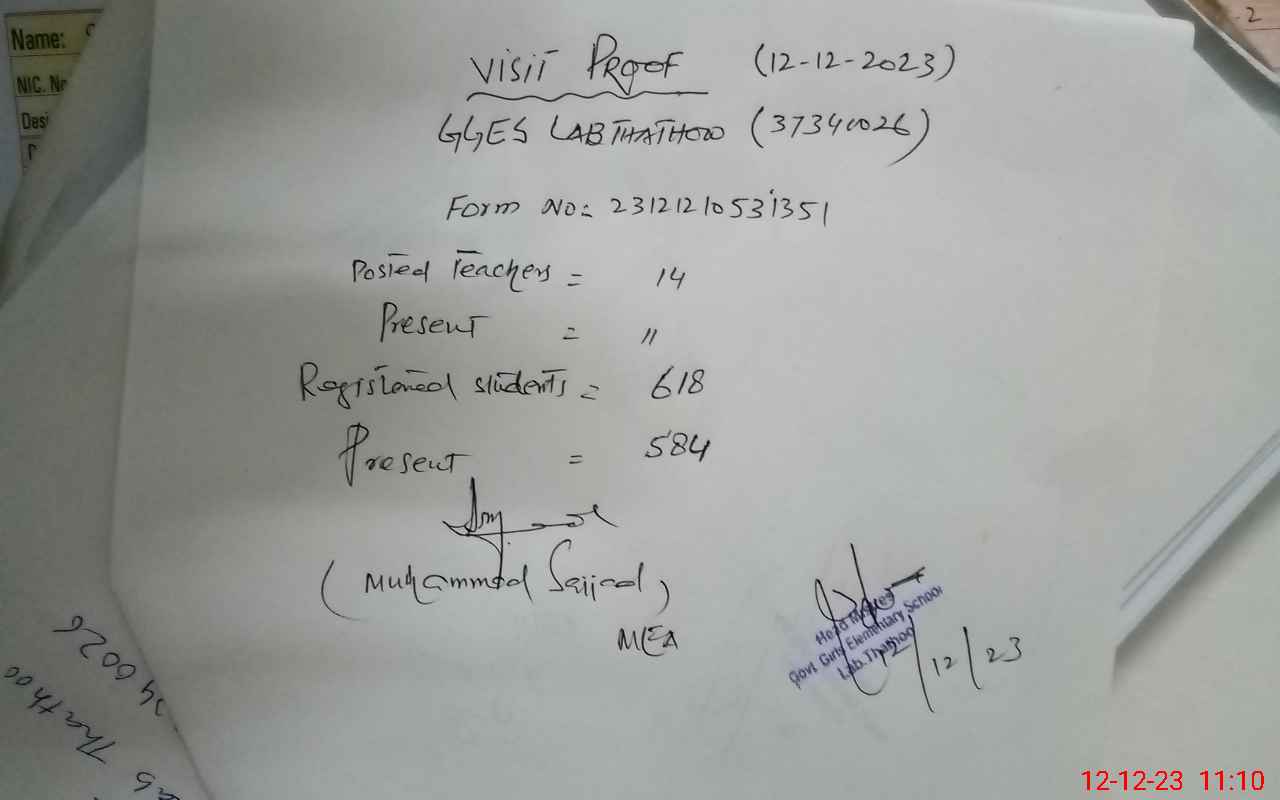 Name:
NIC. No
Desi
2
VISIT PROOF (12-12-2023)
GGES LAB THATHOO (37340026)
Form No: 23121210531351
Posted Teachers = 14
Present = 11
Registered students = 618
Present = 584
(Muhammad Sajjad)
MEA
Head Mistress
Govt Girls Elementary School
Lab Thathoo
12/12/23
340026
Lab Thathoo
12-12-23 11:10